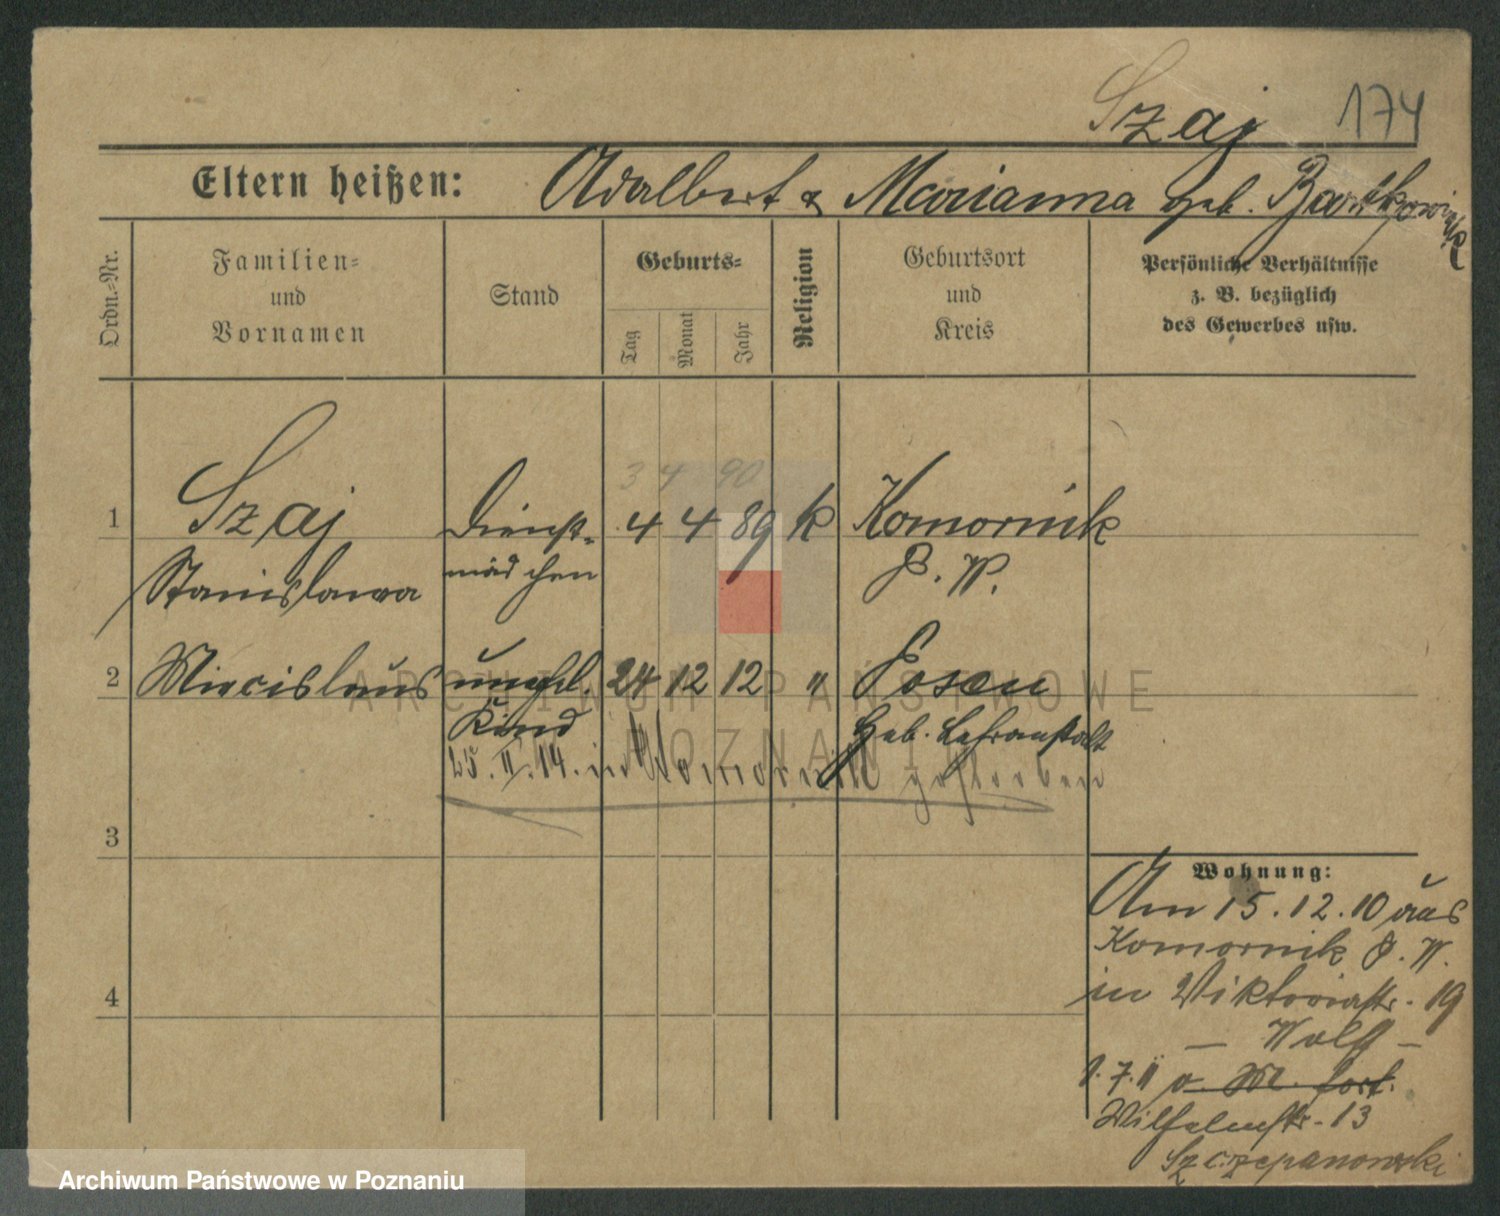 Szaj 174
Eltern heißen: Adalbert & Marianna geb. Bartkowiak
Ordn.-Nr.
Familien-
und
Vornamen
Stand
Geburts-
Tag
Monat
Jahr
Religion
Geburtsort
und
Kreis
Persönliche Verhältnisse
z. B. bezüglich
des Gewerbes usw.
3 4 90
1 Szaj Dienst- 4 4 89 k Komornik
Stanislawa mädchen P. W.
2 Miecislaus unehel. 24 12 12 " Posen
Kind Heb. Lehranstalt
25. II. 14. in Komornik gestorben
3
4
Wohnung:
Am 15.12.10 aus
Komornik P. W.
in Viktoriastr. 19
— Wolff —
1.7.11 v. W. fort.
Wilhelmstr. 13
Szczepanowski
ARCHIWUM PAŃSTWOWE
POZNAŃ
Archiwum Państwowe w Poznaniu